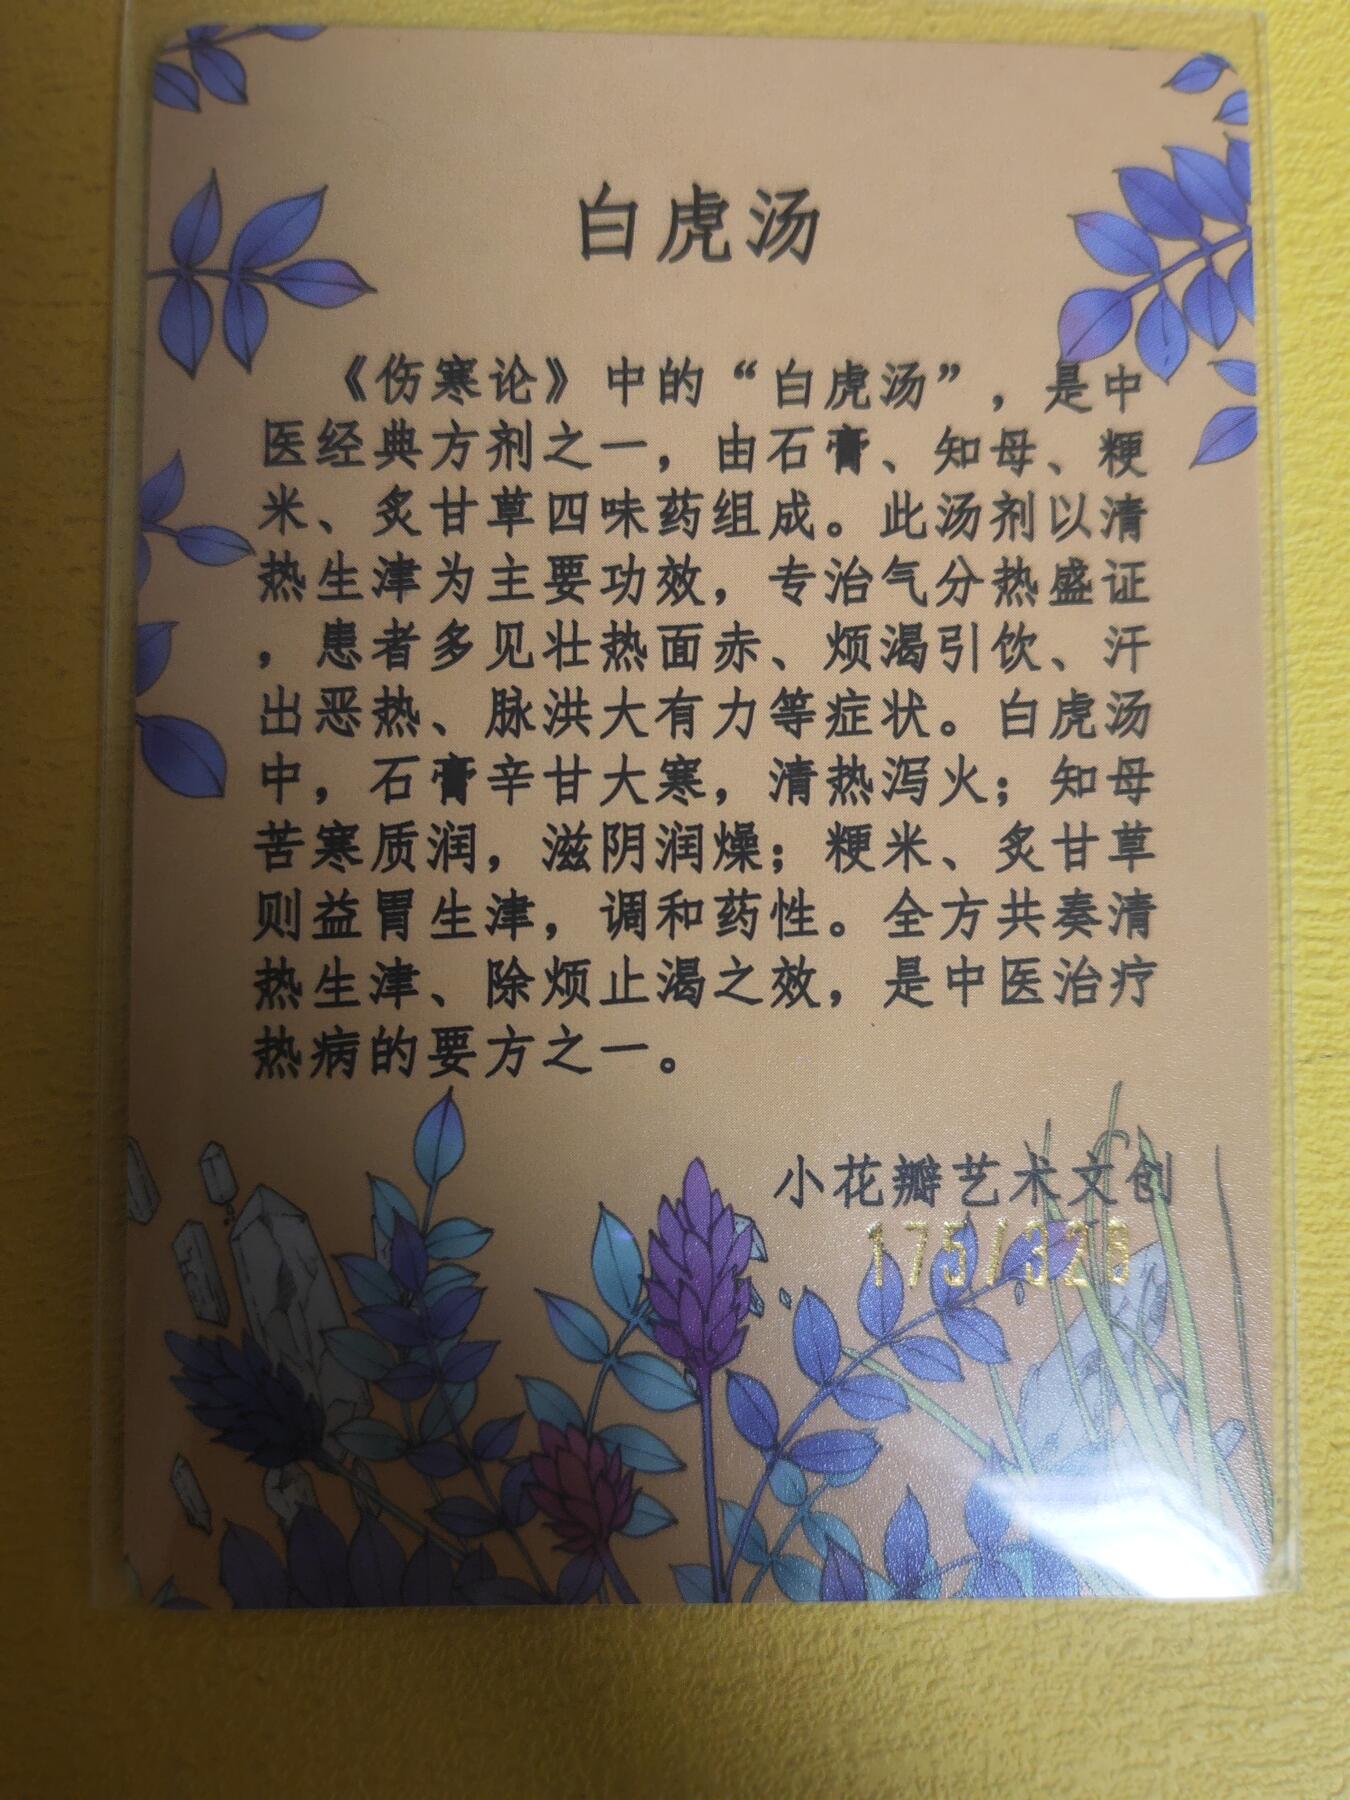 白虎汤
《伤寒论》中的“白虎汤”，是中
医经典方剂之一，由石膏、知母、粳
米、炙甘草四味药组成。此汤剂以清
热生津为主要功效，专治气分热盛证
，患者多见壮热面赤、烦渴引饮、汗
出恶热、脉洪大有力等症状。白虎汤
中，石膏辛甘大寒，清热泻火；知母
苦寒质润，滋阴润燥；粳米、炙甘草
则益胃生津，调和药性。全方共奏清
热生津、除烦止渴之效，是中医治疗
热病的要方之一。
小花瓣艺术文创
175/328